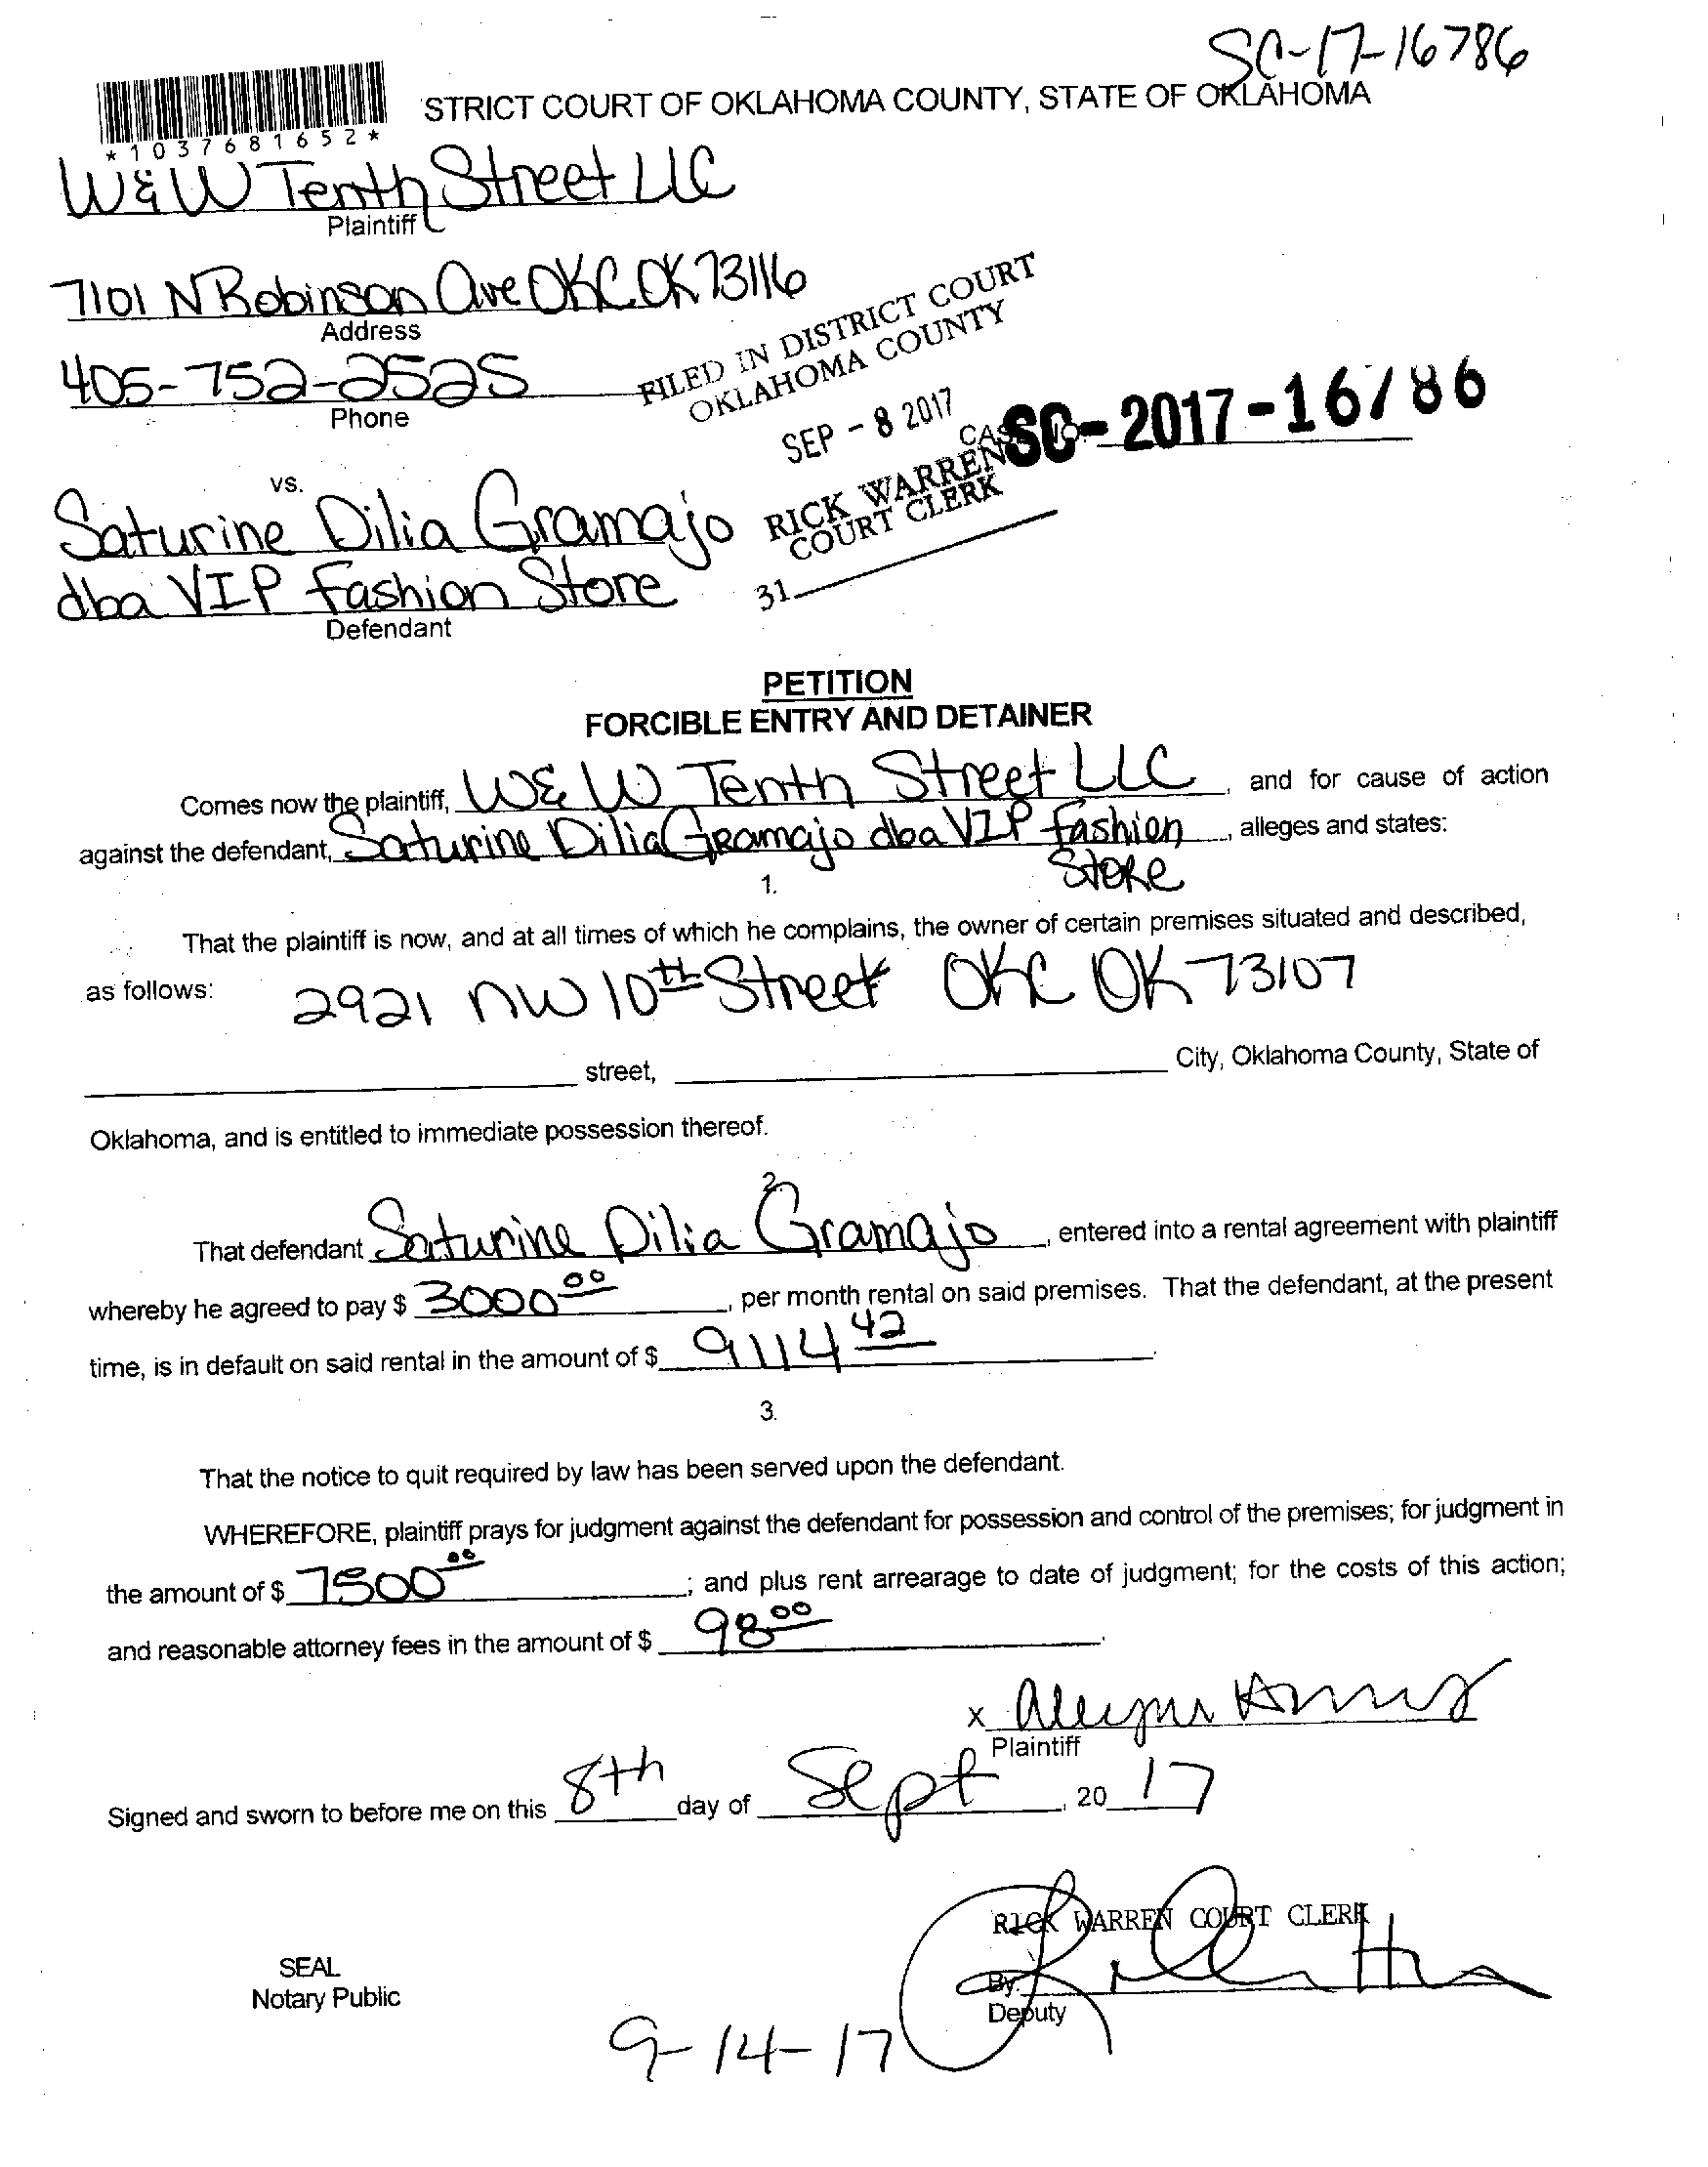 SC-17-16786
STRICT COURT OF OKLAHOMA COUNTY, STATE OF OKLAHOMA
*1037681652*
W & W Tenth Street LLC
Plaintiff
7101 N Robinson Ave OKC OK 73116
Address
405-752-2525
Phone
FILED IN DISTRICT COURT
OKLAHOMA COUNTY
SEP - 8 2017
RICK WARREN
COURT CLERK
31
SC-2017-16786
vs.
Saturine Dilia Gramajo
dba VIP Fashion Store
Defendant
PETITION
FORCIBLE ENTRY AND DETAINER
Comes now the plaintiff, W & W Tenth Street LLC, and for cause of action
against the defendant, Saturine Dilia Gramajo dba VIP Fashion, alleges and states:
Store
1.
That the plaintiff is now, and at all times of which he complains, the owner of certain premises situated and described,
as follows: 2921 NW 10th Street OKC OK 73107
street, City, Oklahoma County, State of
Oklahoma, and is entitled to immediate possession thereof.
2.
That defendant Saturine Dilia Gramajo, entered into a rental agreement with plaintiff
whereby he agreed to pay $ 3000 00, per month rental on said premises. That the defendant, at the present
time, is in default on said rental in the amount of $ 9114 42.
3.
That the notice to quit required by law has been served upon the defendant.
WHEREFORE, plaintiff prays for judgment against the defendant for possession and control of the premises; for judgment in
the amount of $ 7500 00; and plus rent arrearage to date of judgment; for the costs of this action;
and reasonable attorney fees in the amount of $ 98 00.
x
Plaintiff
Signed and sworn to before me on this 8th day of Sept, 20 17
RICK WARREN COURT CLERK
SEAL
Notary Public
By:
Deputy
9-14-17